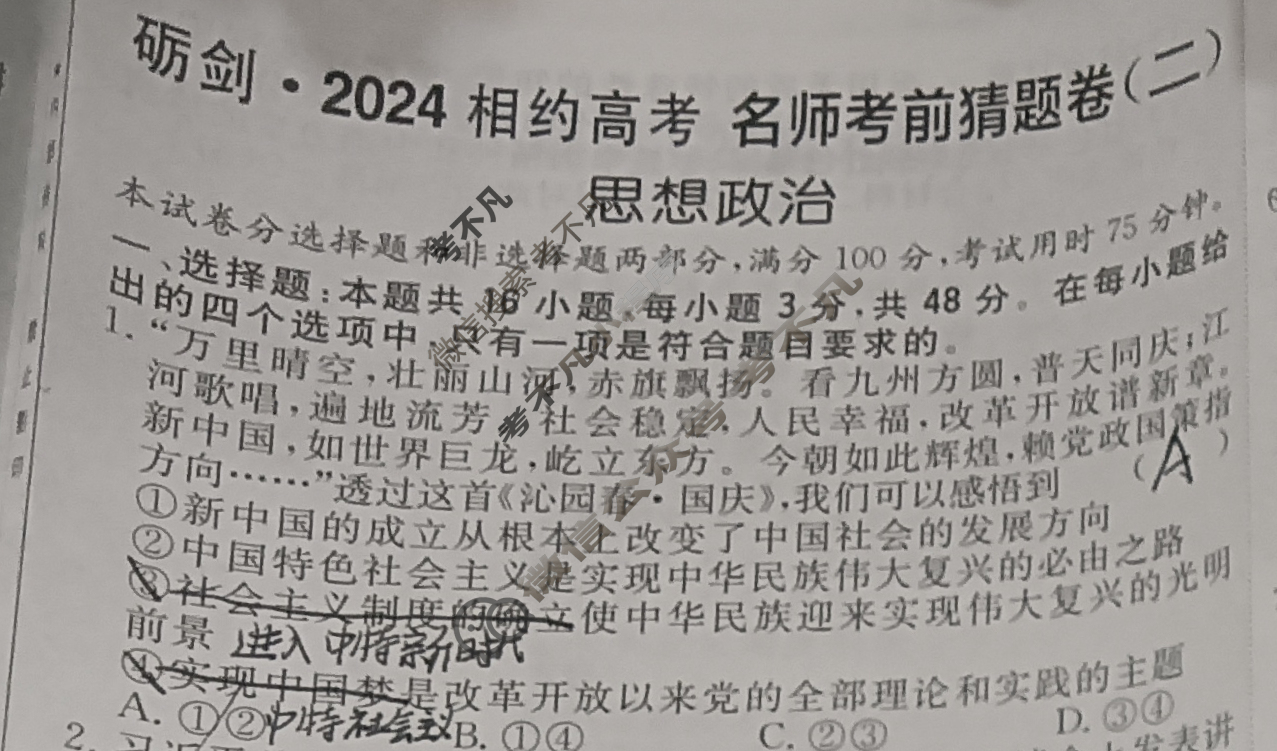 砺剑·2024相约高考 名师考前猜题卷(二)
思想政治
本试卷分选择题和非选择题两部分,满分100分,考试用时75分钟。
一、选择题:本题共16小题,每小题3分,共48分。在每小题给
出的四个选项中,只有一项是符合题目要求的。
1.“万里晴空,壮丽山河,赤旗飘扬。看九州方圆,普天同庆;江
河歌唱,遍地流芳。社会稳定,人民幸福,改革开放谱新章。
新中国,如世界巨龙,屹立东方。今朝如此辉煌,赖党政国策指
方向……”透过这首《沁园春·国庆》,我们可以感悟到 (A)
①新中国的成立从根本上改变了中国社会的发展方向
②中国特色社会主义是实现中华民族伟大复兴的必由之路
③社会主义制度的确立使中华民族迎来实现伟大复兴的光明
前景 进入中特新时代
④实现中国梦是改革开放以来党的全部理论和实践的主题
中特社会主义
A.①② B.①④ C.②③ D.③④
2.习近平
发表讲
考不凡
微信搜索 考不凡
考不凡
微信公众号 考不凡